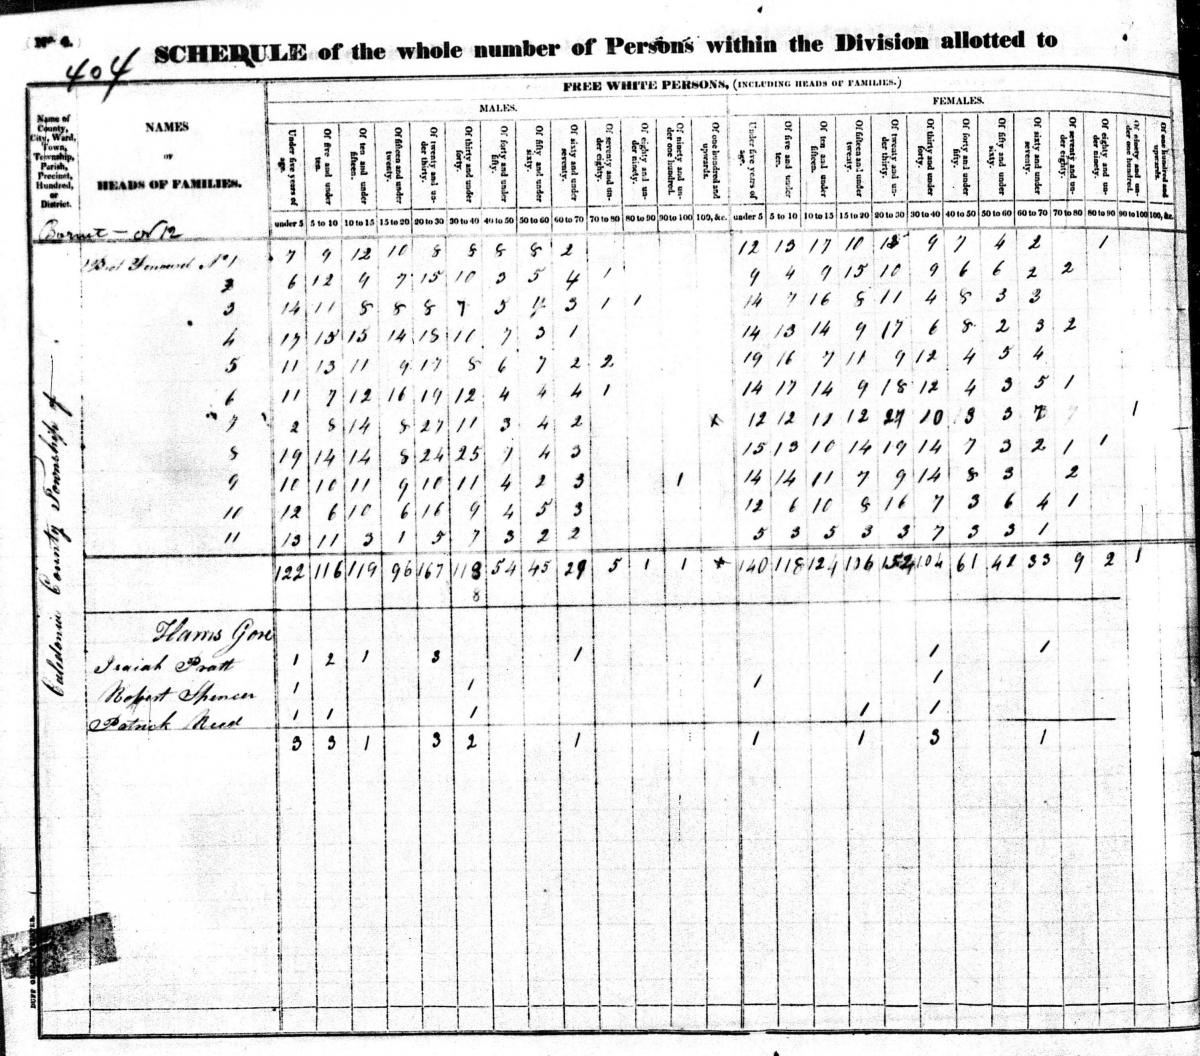 No 4.
404
SCHEDULE of the whole number of Persons within the Division allotted to
FREE WHITE PERSONS, (INCLUDING HEADS OF FAMILIES.)
MALES. FEMALES.
Name of County, City, Ward, Town, Township, Parish, Precinct, Hundred, or District.
NAMES
OF
HEADS OF FAMILIES.
Under five years of age. Of five and under ten. Of ten and under fifteen. Of fifteen and under twenty. Of twenty and under thirty. Of thirty and under forty. Of forty and under fifty. Of fifty and under sixty. Of sixty and under seventy. Of seventy and under eighty. Of eighty and under ninety. Of ninety and under one hundred. Of one hundred and upwards. Under five years of age. Of five and under ten. Of ten and under fifteen. Of fifteen and under twenty. Of twenty and under thirty. Of thirty and under forty. Of forty and under fifty. Of fifty and under sixty. Of sixty and under seventy. Of seventy and under eighty. Of eighty and under ninety. Of ninety and under one hundred. Of one hundred and upwards.
under 5 5 to 10 10 to 15 15 to 20 20 to 30 30 to 40 40 to 50 50 to 60 60 to 70 70 to 80 80 to 90 90 to 100 100, &c. under 5 5 to 10 10 to 15 15 to 20 20 to 30 30 to 40 40 to 50 50 to 60 60 to 70 70 to 80 80 to 90 90 to 100 100, &c.
Barnet — 12
No 1 7 9 12 10 8 8 8 8 2 12 13 17 10 9 7 4 2 1
2 6 12 9 7 15 10 3 5 4 1 9 4 9 15 10 9 6 6 2 2
3 14 11 8 8 8 7 5 4 3 1 1 14 7 16 8 11 4 8 3 3
4 17 15 15 14 18 10 7 3 1 14 13 14 9 17 6 8 2 3 2
5 11 13 11 9 17 8 6 7 2 2 19 16 7 11 9 12 4 5 4
6 11 7 12 16 19 12 4 4 4 1 14 17 14 9 18 12 4 3 5 1
7 2 8 14 8 27 11 3 4 2 12 12 11 12 27 10 3 3 7 1
8 19 14 14 8 24 25 7 4 3 15 13 10 14 19 14 7 3 2 1 1
9 10 10 11 9 10 11 4 2 3 1 14 14 11 7 9 14 8 3 2
10 12 6 10 6 16 9 4 5 3 12 6 10 8 16 7 3 6 4 1
11 13 11 3 1 5 7 3 2 2 5 3 5 3 3 7 3 3 1
122 116 119 96 167 118 54 45 29 5 1 1 140 118 124 106 154 104 61 42 33 9 2 1
8
Caledonia County Township of
Harris Gore
Isaiah Pratt 1 2 1 3 1 1 1
Robert Spencer 1 1 1 1
Patrick Reed 1 1 1 1 1
3 3 1 3 2 1 1 1 3 1